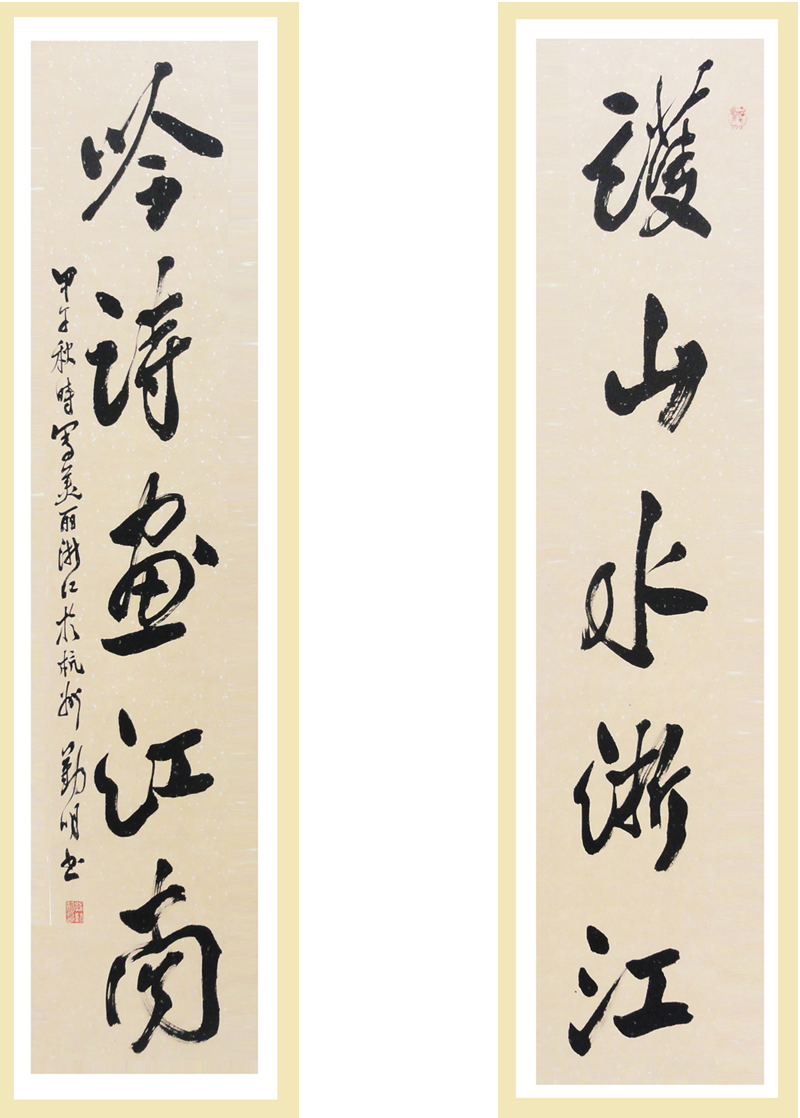 護山水浙江
吟詩畫江南
甲午秋時寫美丽浙江於杭州 勤明书